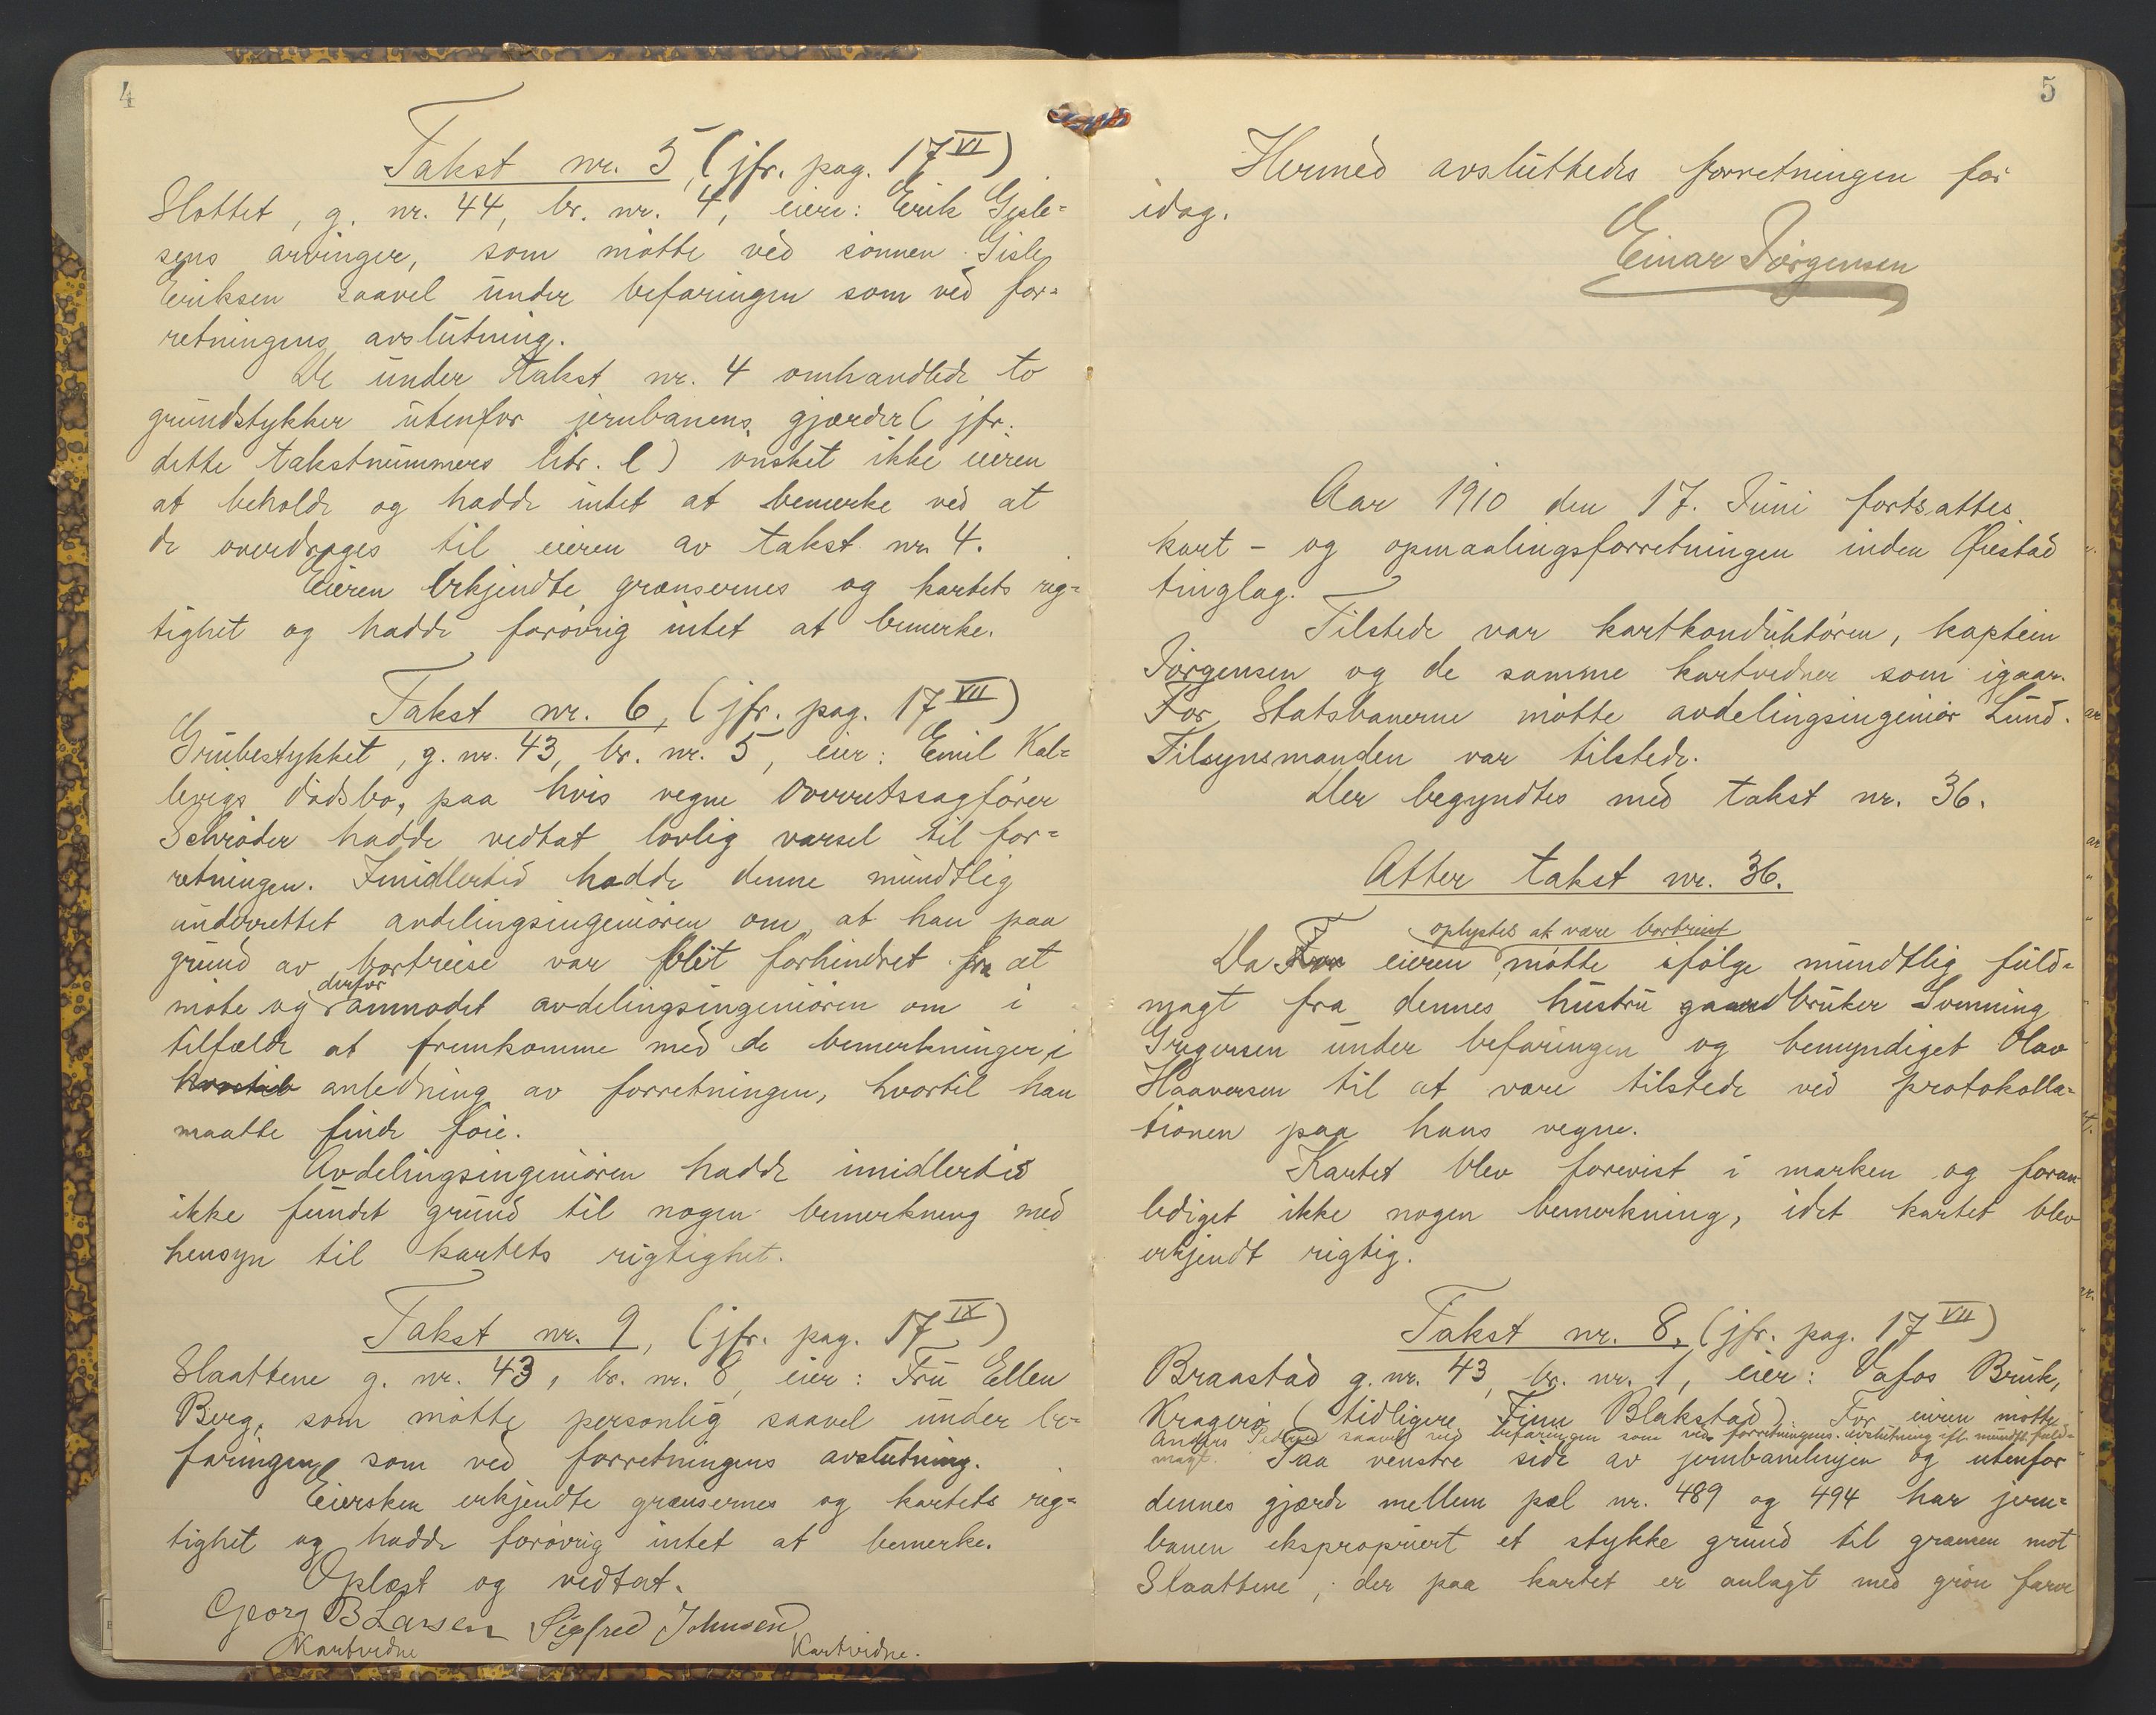 4
Takst nr. 5, (jfr. pag. 17 VI)
Slottet, g. nr. 44, br. nr. 4, eiere: Erik Gisle=
sens arvinger, som møtte ved sønnen Gisle
Eriksen saavel under befaringen som ved for=
retningens avslutning.
De under takst nr. 4 omhandlede to
grundstykker utenfor jernbanens gjærder (jfr.
dette takstnummers litr. l) ønsket ikke eieren
at beholde og hadde intet at bemerke ved at
de overdrages til eieren av takst nr. 4.
Eieren erkjendte grænsernes og kartets rig=
tighet og hadde forøvrig intet at bemerke.
Takst nr. 6, (jfr. pag. 17 VII)
Grubestykket, g. nr. 43, br. nr. 5, eier: Emil Kal=
levigs dødsbo, paa hvis vegne Overretssagfører
Schrøder hadde vedtat lovlig varsel til for=
retningen. Imidlertid hadde denne mundtlig
underrettet avdelingsingeniøren om, at han paa
grund av bortreise var blit forhindret fra at
møte og derfor anmodet avdelingsingeniøren om i
tilfælde at fremkomme med de bemerkninger i
anledning av forretningen, hvortil han
maatte finde føie.
Avdelingsingeniøren hadde imidlertid
ikke fundet grund til nogen bemerkning med
hensyn til kartets rigtighet.
Takst nr. 9, (jfr. pag. 17 IX)
Slaattene g. nr. 43, br. nr. 8, eier: Fru Ellen
Berg, som møtte personlig saavel under be=
faringen som ved forretningens avslutning.
Eiersken erkjendte grænsernes og kartets rig=
tighet og hadde forøvrig intet at bemerke.
Oplæst og vedtat.
Georg B Larsen Sigfred Johnsen
Kartvidne Kartvidne.
5
Hermed avsluttedes forretningen for
idag.
Einar Jørgensen
Aar 1910 den 17. Juni fortsattes
kart- og opmaalingsforretningen inden Øiestad
tinglag.
Tilstede var kartkonduktøren, kaptein
Jørgensen og de samme kartvidner som igaar.
For Statsbanerne møtte avdelingsingeniør Lund.
Tilsynsmanden var tilstede.
Der begyndtes med takst nr. 36.
Atter takst nr. 36.
oplystes at være bortreist
Da For eieren møtte ifølge mundtlig fuld=
magt fra dennes hustru gaardbruker Svenning
Gregersen under befaringen og bemyndiget Olav
Haaversen til at være tilstede ved protokolla=
tionen paa hans vegne.
Kartet blev forevist i marken og foran
lediget ikke nogen bemerkning, idet kartet blev
erkjendt rigtig.
Takst nr. 8, (jfr. pag. 17 VII)
Braastad g. nr. 43, br. nr. 1, eier: Vafos Bruk,
Kragerø (tidligere Finn Blakstad). For eieren møtte
Anders Pedersen saavel ved befaringen som ved forretningens avslutning ifl. mundtl. fuld=
magt. Paa venstre side av jernbanelinjen og utenfor
dennes gjærde mellem pæl nr. 489 og 494 har jern=
banen ekspropriert et stykke grund til grænsen mot
Slaattene, der paa kartet er anlagt med grøn farve